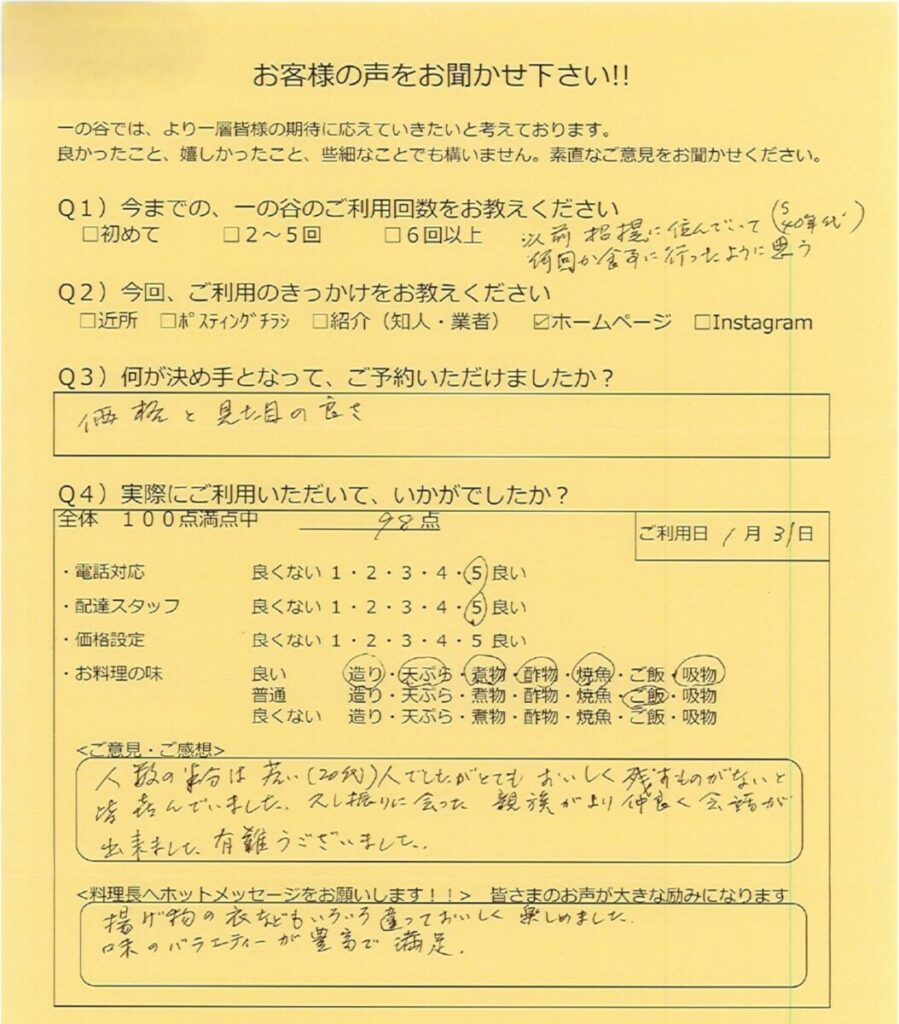 お客様の声をお聞かせ下さい!!
一の谷では、より一層皆様の期待に応えていきたいと考えております。
良かったこと、嬉しかったこと、些細なことでも構いません。素直なご意見をお聞かせください。
Q1）今までの、一の谷のご利用回数をお教えください
□初めて □2～5回 □6回以上
以前 招提に住んでいて (S40年代)
何回か食事に行ったように思う
Q2）今回、ご利用のきっかけをお教えください
□近所 □ﾎﾟｽﾃｨﾝｸﾞﾁﾗｼ □紹介（知人・業者） ☑ホームページ □Instagram
Q3）何が決め手となって、ご予約いただけましたか？
価格と見た目の良さ
Q4）実際にご利用いただいて、いかがでしたか？
全体 １００点満点中 98点
ご利用日 1月31日
・電話対応 良くない 1・2・3・4・5 良い
・配達スタッフ 良くない 1・2・3・4・5 良い
・価格設定 良くない 1・2・3・4・5 良い
・お料理の味 良い 造り・天ぷら・煮物・酢物・焼魚・ご飯・吸物
普通 造り・天ぷら・煮物・酢物・焼魚・ご飯・吸物
良くない 造り・天ぷら・煮物・酢物・焼魚・ご飯・吸物
<ご意見・ご感想>
人数の半分は若い(20代)人でしたがとてもおいしく残すものがないと
皆喜んでいました。久し振りに会った親族がより仲良く会話が
出来ました 有難うございました。
<料理長へホットメッセージをお願いします！！> 皆さまのお声が大きな励みになります
揚げ物の衣などもいろいろ違っておいしく楽しめました。
味のバラエティーが豊富で満足。